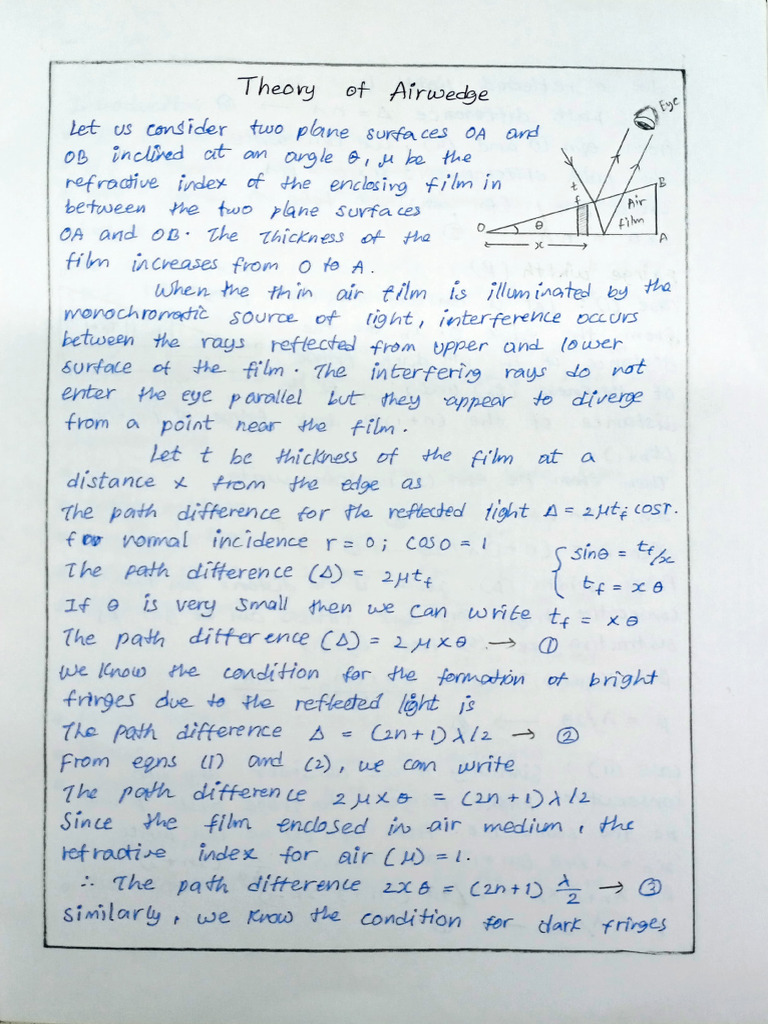 Theory of Airwedge
Let us consider two plane surfaces OA and
OB inclined at an angle θ, μ be the
refractive index of the enclosing film in
between the two plane surfaces
OA and OB. The Thickness of the
film increases from O to A.
Eye
t
f
B
Air
film
O
θ
A
x
When the thin air film is illuminated by the
monochromatic source of light, interference occurs
between the rays reflected from upper and lower
surface of the film. The interfering rays do not
enter the eye parallel but they appear to diverge
from a point near the film.
Let t be thickness of the film at a
distance x from the edge as
The path difference for the reflected light Δ = 2μtf cosr.
for normal incidence r = 0; cos0 = 1
The path difference (Δ) = 2μtf
{ sinθ = tf/x
{ tf = xθ
If θ is very small then we can write tf = xθ
The path difference (Δ) = 2μxθ → ①
We know the condition for the formation of bright
fringes due to the reflected light is
The path difference Δ = (2n+1)λ/2 → ②
From eqns (1) and (2), we can write
The path difference 2μxθ = (2n+1)λ/2
Since the film enclosed in air medium, the
refractive index for air (μ) = 1.
∴ The path difference 2xθ = (2n+1) λ/2 → ③
similarly, we know the condition for dark fringes